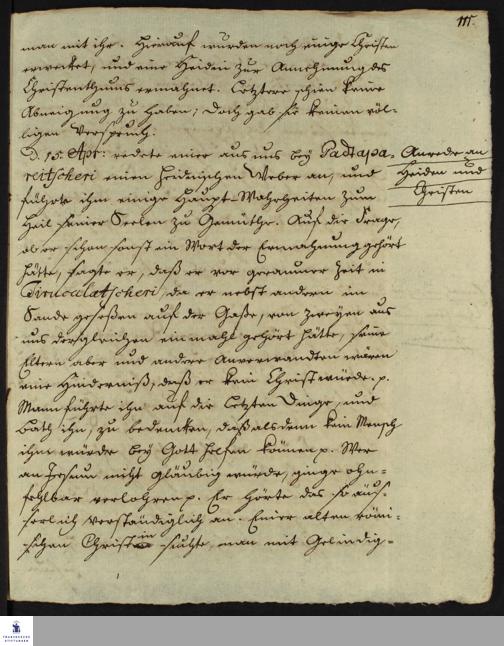 111.
man mit ihr. Hierauf wurden noch einige Christen
erwecket, und eine Heidin zur Annehmung des
Christenthums ermahnet. Letztere schien keine
Abneigung zu haben; doch gab sie keinen völ-
ligen Verspruch.
d. 15. Apr: redete einer aus uns bey Padtapa-
reitscheri einen heidnischen Weber an, und
führte ihm einige Haupt-Wahrheiten zum
Heil seiner Seelen zu Gemüthe. Auf die Frage,
ob er schon sonst ein Wort der Ermahnung gehört
hätte, sagte er, daß er vor geraumer Zeit in
Tirucalatscheri, da er nebst andern im
Sande gesessen auf der Gaße, von zweyen aus
uns dergleichen einmahl gehört hätte, seine
Eltern aber und andere Anverwandten wären
eine Hinderniß, daß er kein Christ würde. p.
Man führte ihn auf die letzten Dinge, und
bath ihn, zu bedencken, daß alsdenn kein Mensch
ihm würde bey Gott helfen können p. Wer
an Jesum nicht gläubig würde, ginge ohn-
fehlbar verlohren p. Er hörte das so äus-
serlich verständiglich an. Einer alten römi-
schen Christin suchte man mit Gelindig-
Anrede an
Heiden und
Christen
FRANCKESCHE
STIFTUNGEN